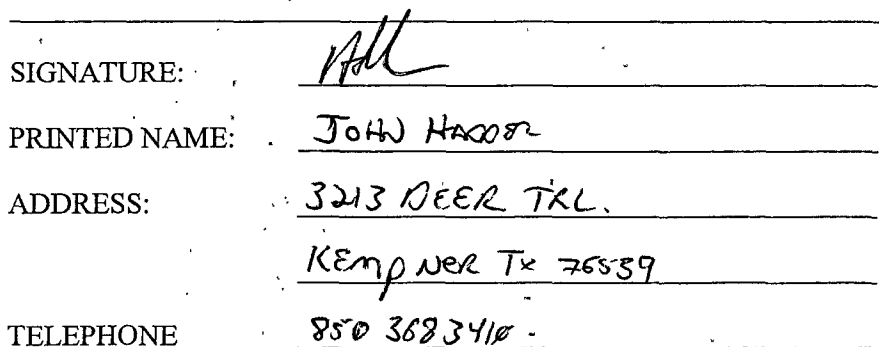 SIGNATURE:
PRINTED NAME: JOHN HADDER
ADDRESS: 3213 DEER TRL.
KEMPNER TX 76539
TELEPHONE 850 368 3410